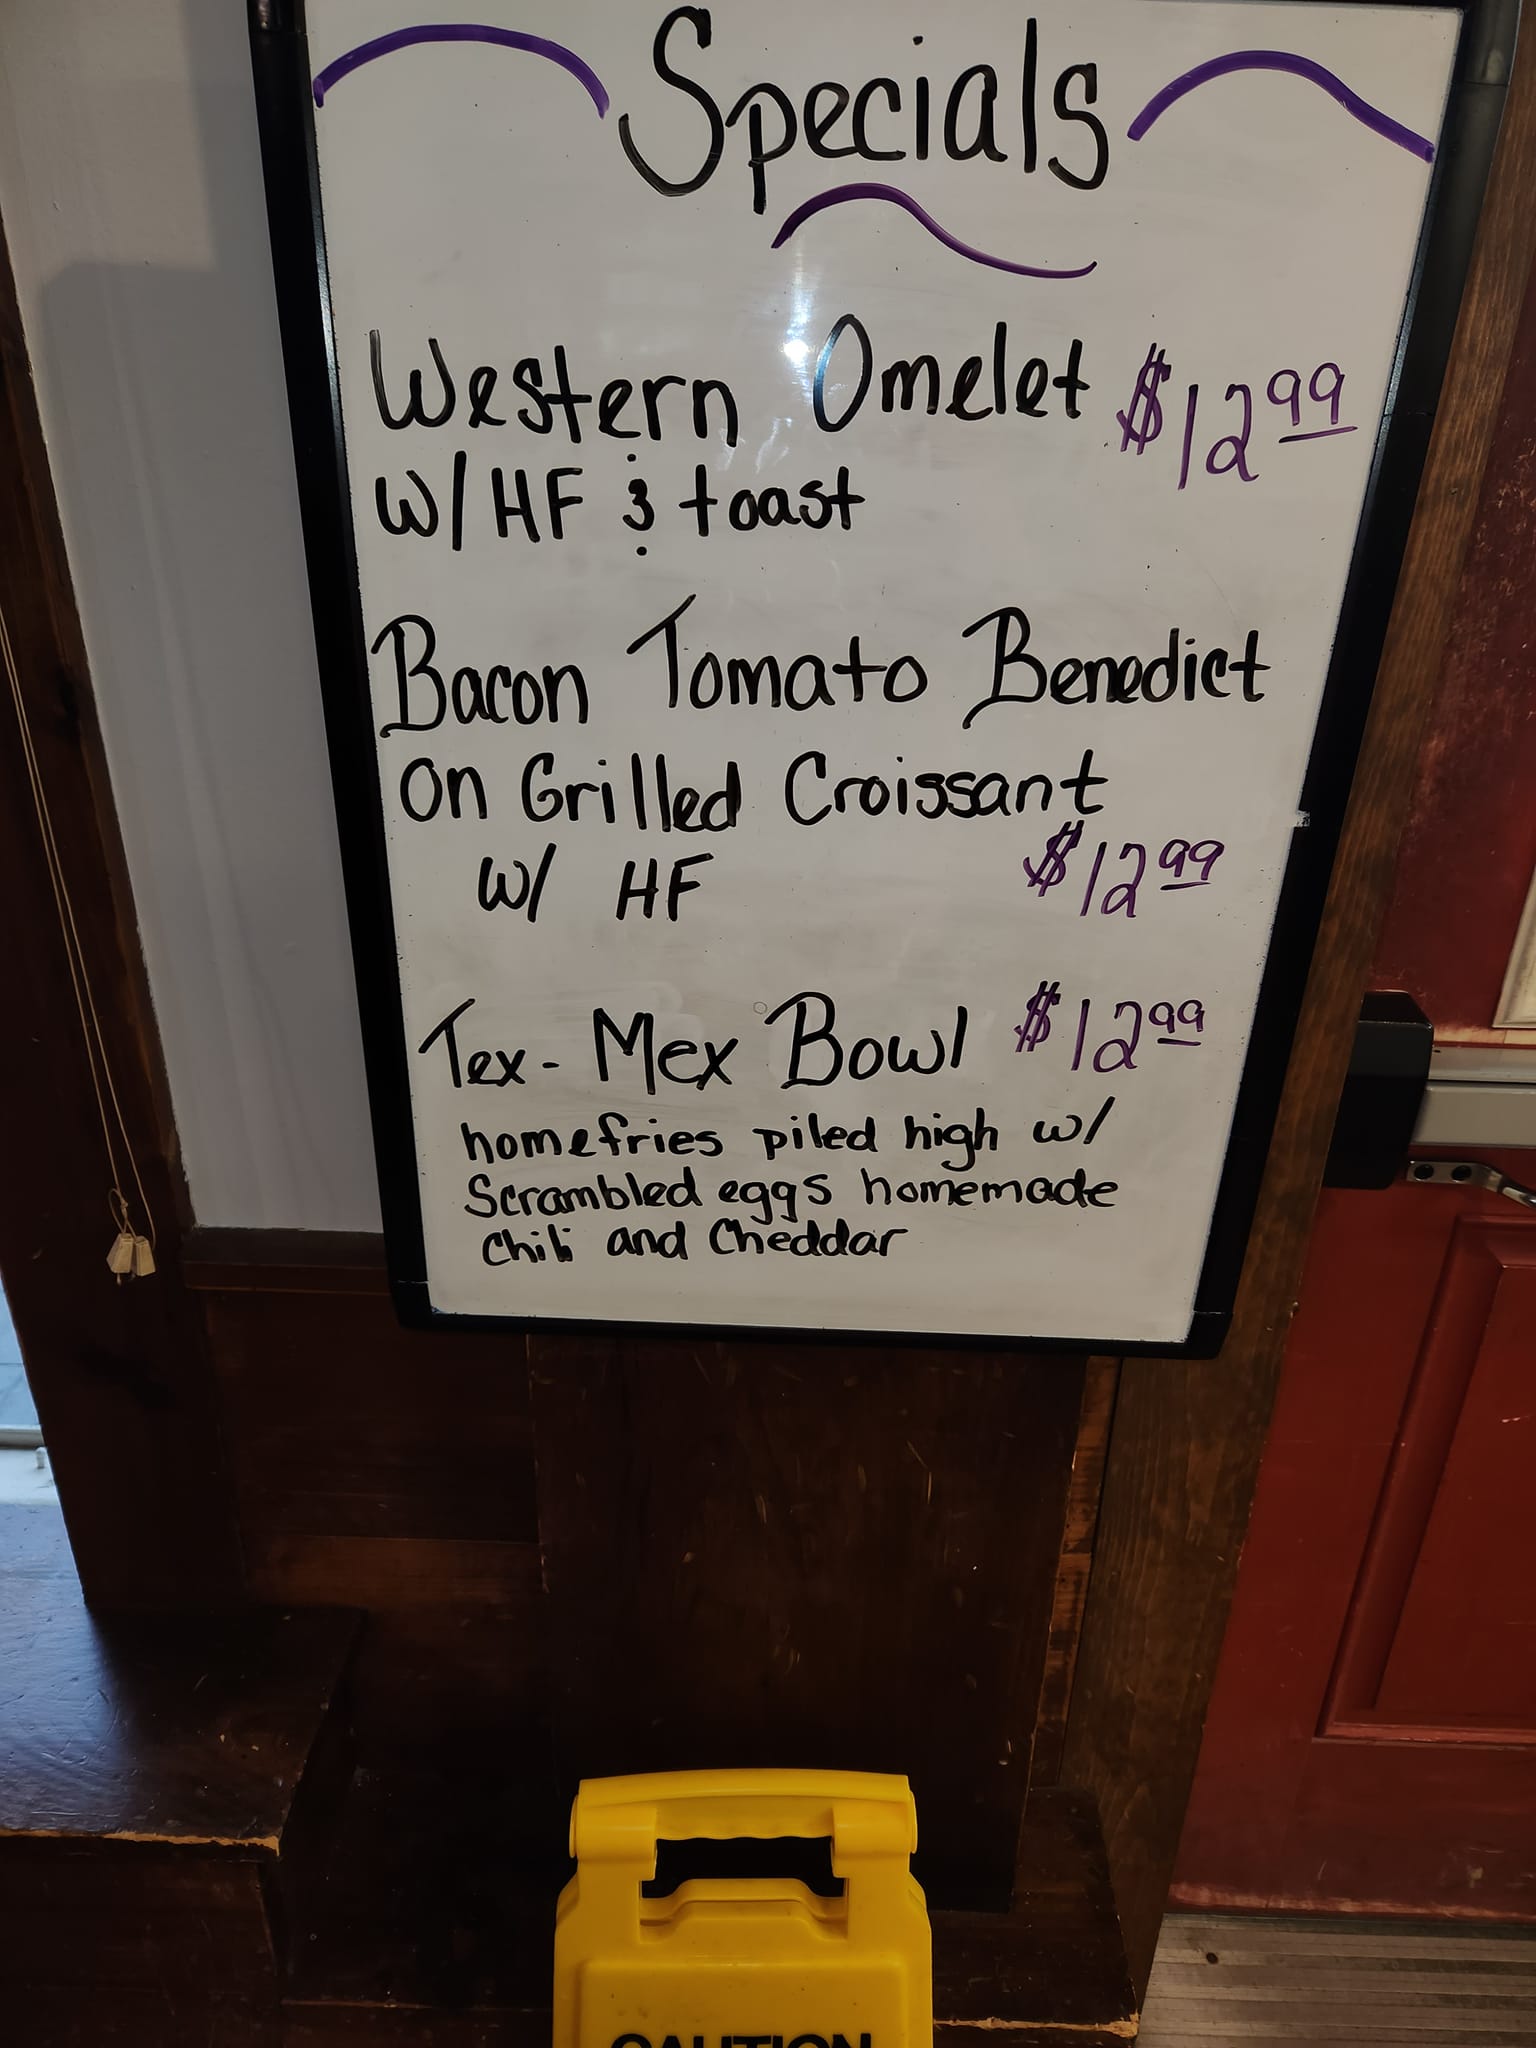 Specials
Western Omelet $12.99
W/HF & toast
Bacon Tomato Benedict
on Grilled Croissant
W/ HF $12.99
Tex-Mex Bowl $12.99
homefries piled high w/
Scrambled eggs homemade
Chili and Cheddar
CAUTION